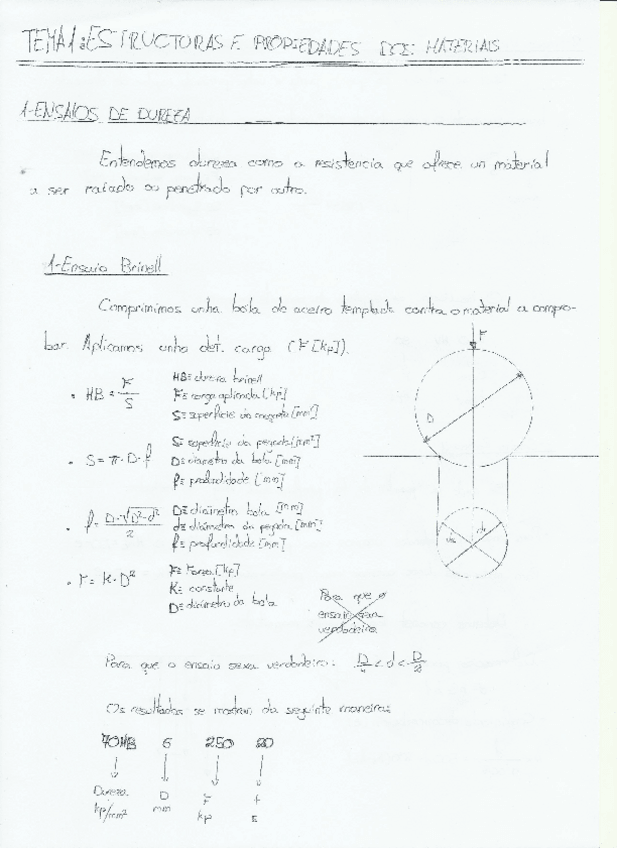 TEMA 1: ESTRUCTURAS E PROPIEDADES DOS MATERIAIS
1-ENSAIOS DE DUREZA
Entendemos dureza como a resistencia que ofrece un material
a ser raiado ou penetrado por outro.
1-Ensaio Brinell
Comprimimos unha bola de aceiro templado contra o material a compro-
bar. Aplicamos unha det. carga (F[kp]).
• HB = F/S
HB≡ dureza brinell
F≡ carga aplicada [kp]
S≡ superficie da pegada [mm²]
• S = π·D·f
S≡ superficie da pegada [mm²]
D≡ diámetro da bola [mm]
f≡ profundidade [mm]
• f = D-√D²-d² / 2
D≡ diámetro bola [mm]
d≡ diámetro da pegada [mm]
f≡ profundidade [mm]
• F = K·D²
F≡ Forza [kp]
K≡ constante
D≡ diámetro da bola
F
D
d
Para que o
ensaio sexa
verdadeiro
Para que o ensaio sexa verdadeiro: D/4 < d < D/2
Os resultados se mostran da seguinte maneira:
70HB 5 250 30
↓ ↓ ↓ ↓
Dureza D F t
kp/mm² mm kp s